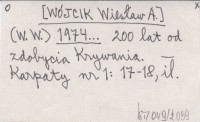 [WÓJCIK Wiesław A.]
(W.W.) 1974... 200 lat od
zdobycia Krywania. —
Karpaty nr 1: 17-18, il.